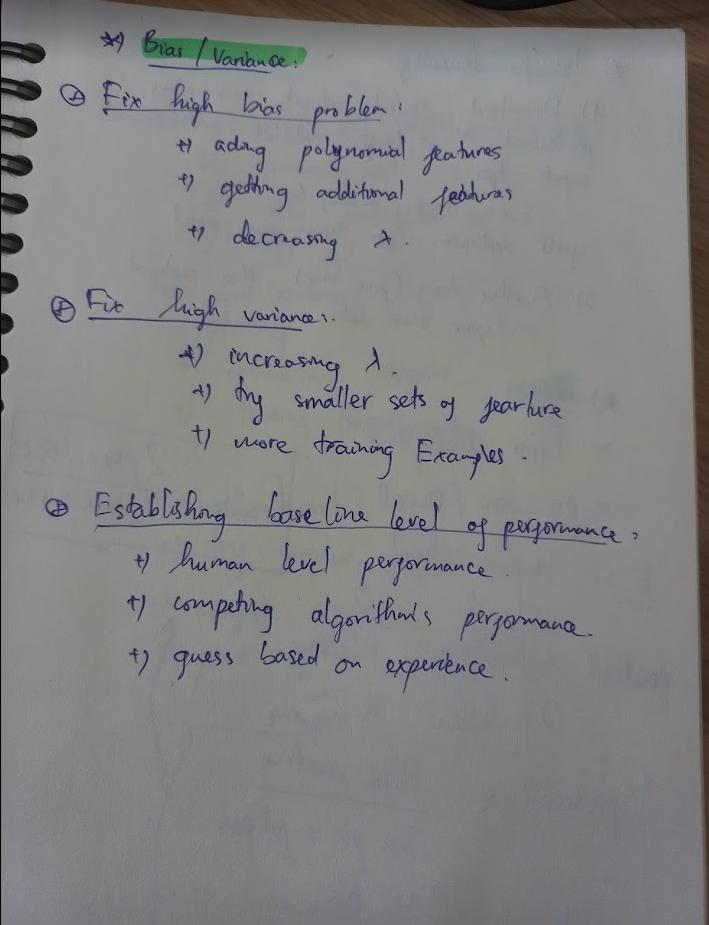 *) Bias / Variance:
⊕ Fix high bias problem:
+) ading polynomial features
+) getting additional features
+) decreasing λ.
⊕ Fix high variance:.
+) increasing λ.
+) try smaller sets of fearture
+) more training Examples.
⊕ Establishing baseline level of performance:
+) human level performance.
+) competing algorithm's performance.
+) guess based on experience.